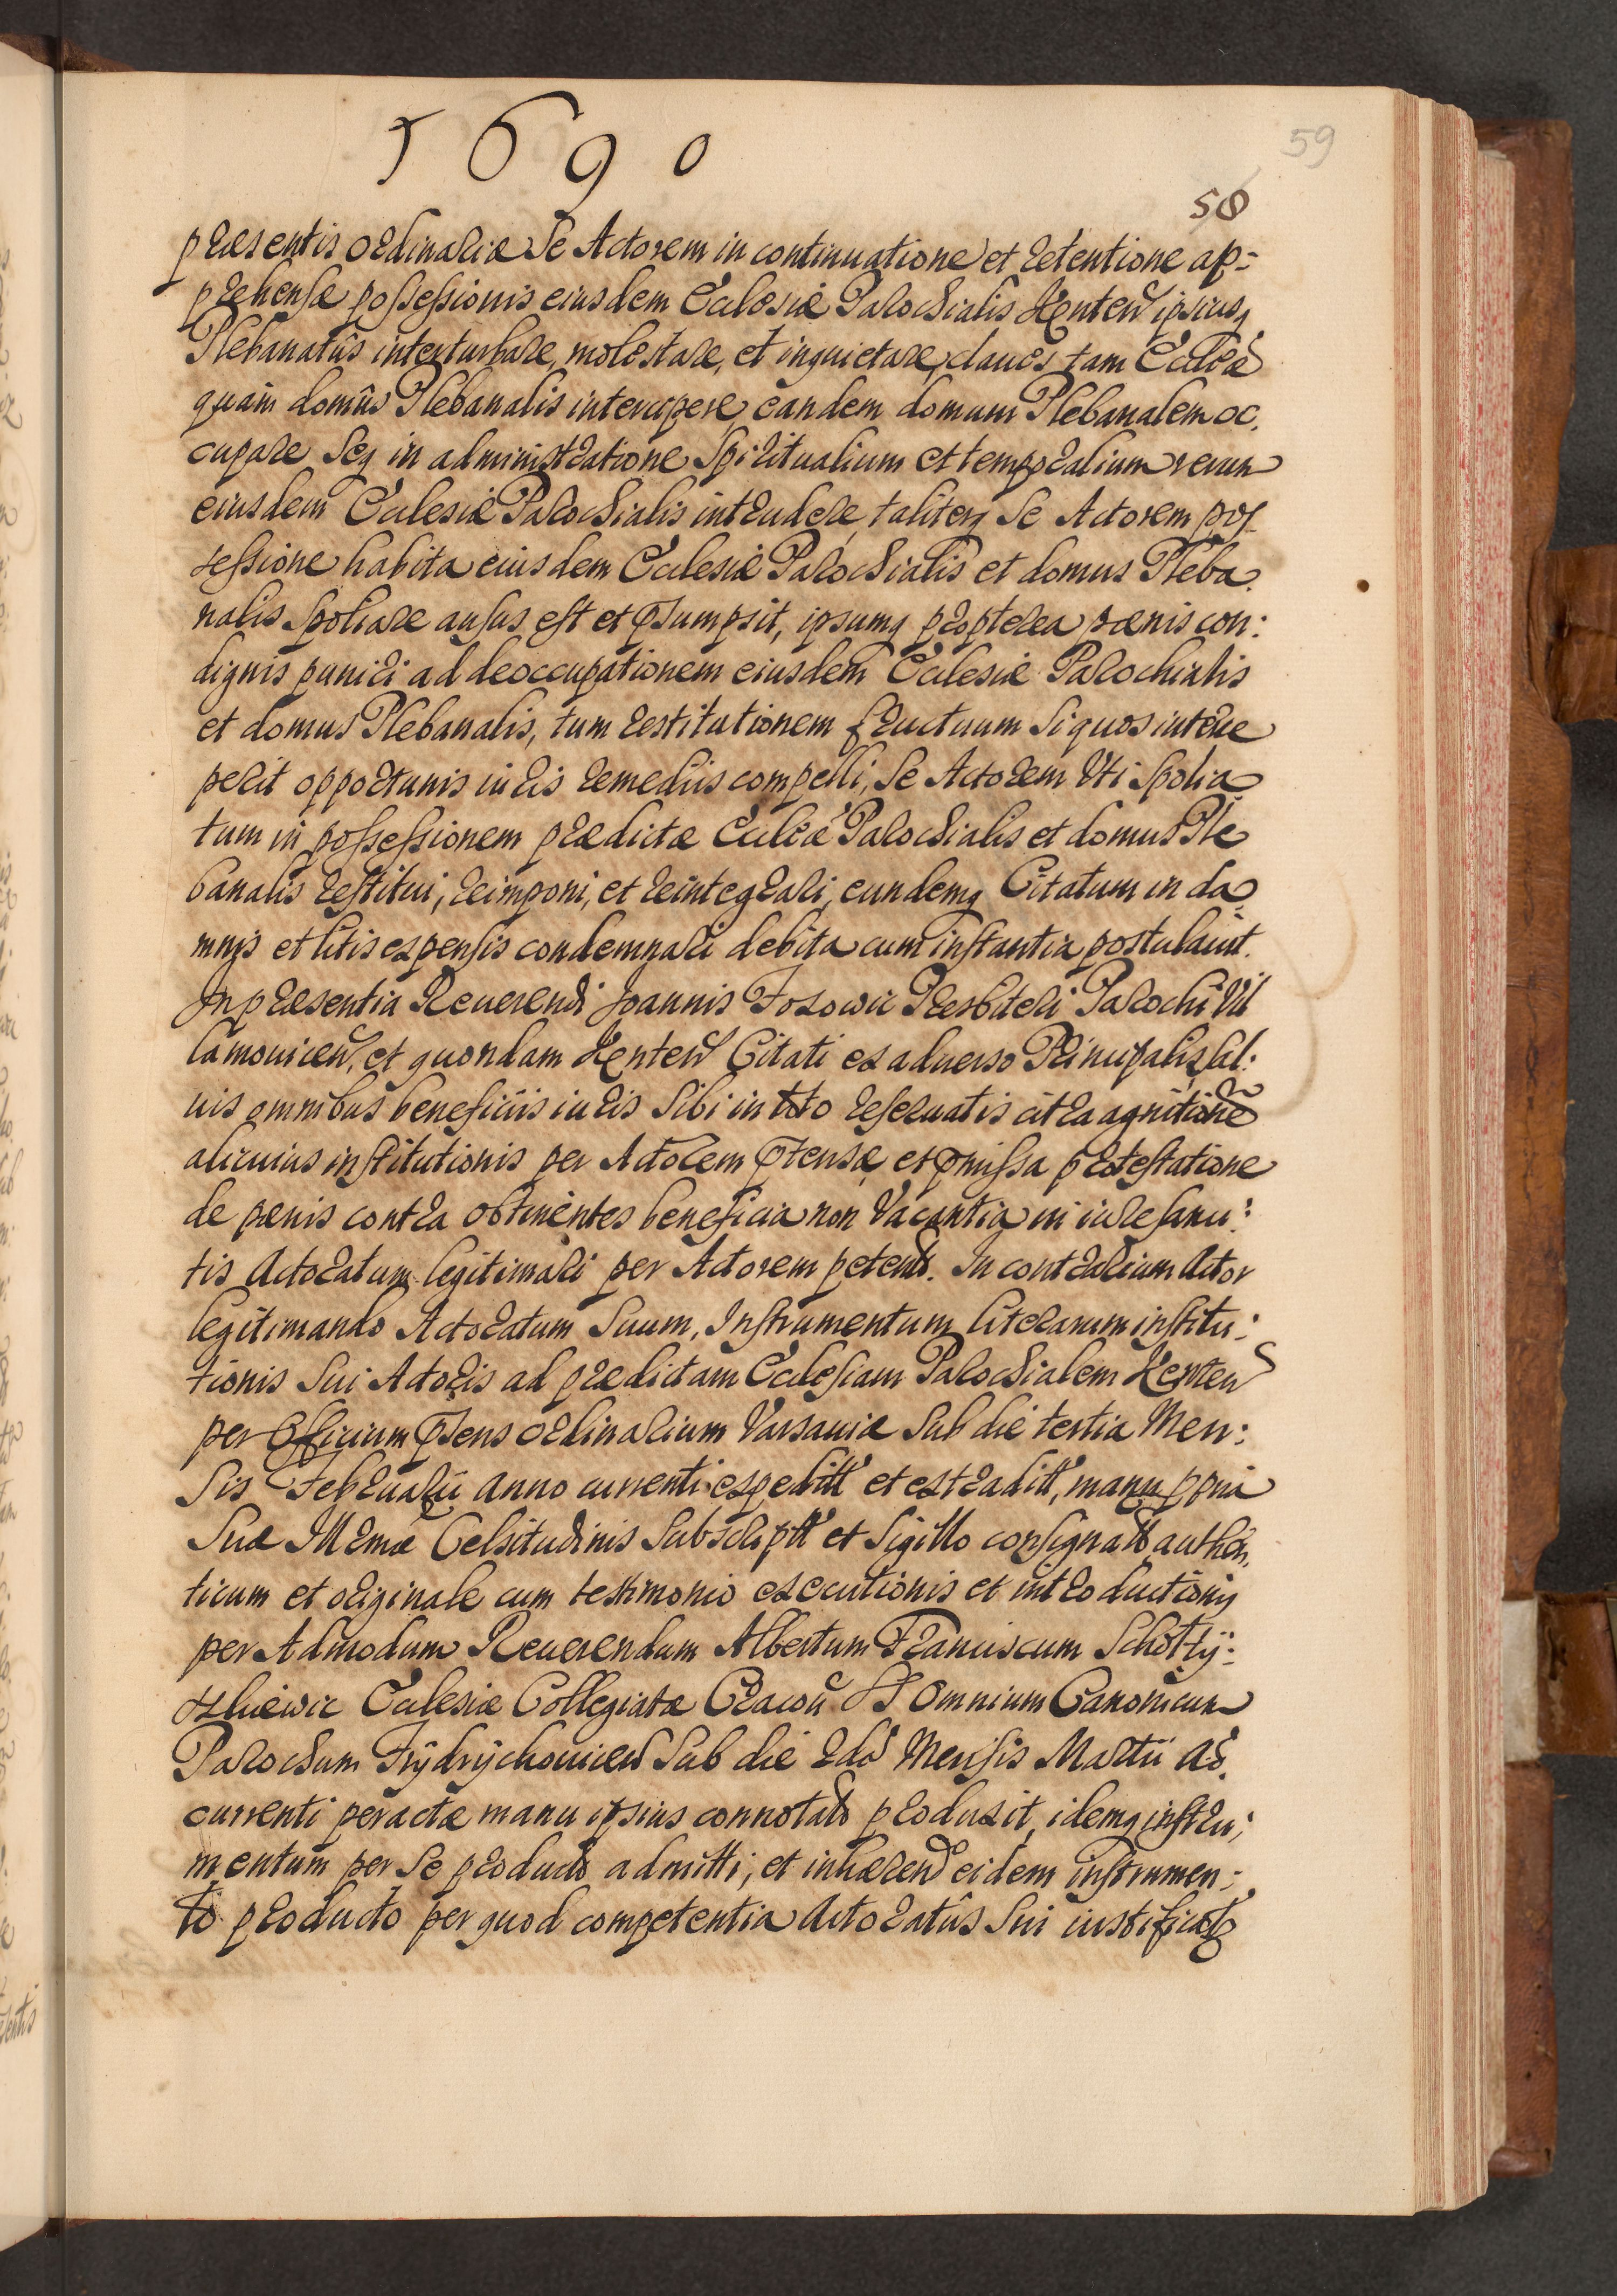 1690
59
58
præsentis ordinariæ Se Actorem in continuatione et retentione ap=
prehensæ possessionis eiusdem Ecclesiæ Parochialis Kenten ipsiusq
Plebanatûs inteturbare, molestare, et inquietare, claues tam Ecclæ
quàm domûs Plebanalis intercipere eandem domum Plebanalem oc.
cupare Seq in administratione Spiritualium et temporalium rerum
eiusdem Ecclesiæ Parochialis intrudere, taliterq Se Actorem pos
sessione habita eiusdem Ecclesiæ Parochialis et domus Pleba
nalis Spoliare ausus est et psumpsit, ipsumq propterea pœnis con:
dignis puniri ad deoccupationem eiusdem Ecclesiæ Parochialis
et domus Plebanalis, tum restitutionem fructuum Si quos interce
perit opportunis iuris remediis compelli, Se Actorem Uti Spolia
tum in possessionem prædictæ Ecclæ Parochialis et domus Ple
banalis restitui, reimponi, et reintegrari, eundemq Citatum in da
mnis et litis expensis condemnari debita cum instantia postulauit.
In præsentia Reuerendi Joannis Fozowic Presbiteri Parochi Vil
lamouicen, et quondam Kenten Citati ex aduerso Principalis, sal:
uis omnibus beneficiis iuris Sibi in toto reseruatis citra agnitionē
alicuius institutionis per Actorem ptensæ, et pmissa protestatione
de pœnis contra obtinentes beneficia non Vacantia in iure sanci:
tis Actoratum legitimari per Actorem petend. In contrarium Actor
legitimando Actoratum Suum, Instrumentum literarum institu:
tionis Sui Actoris ad prædictam Ecclesiam Parochialem Kenten
per Officium psens ordinarium Varsauiæ Sub die tertia Men:
Sis Februarii anno currenti expeditt et extraditt, manu ppria
Suæ Illrmæ Celsitudinis Subscriptt et Sigillo consignatt, authen
ticum et originale cum testimonio executionis et introductionis
per Admodum Reuerendum Albertum Franciscum Schotty:
Ecclesiæ Collegiatæ Cracou SS Omnium Canonicum
Parochum Frydrychouicen Sub die 2da Mensis Martii ao.
currenti peractæ manu ipsius connotato produxit, idemq instru;
mentum per Se producto admitti, et inhærend eidem instrumen:
to producto per quod competentia Actoratûs Sui iustificatq